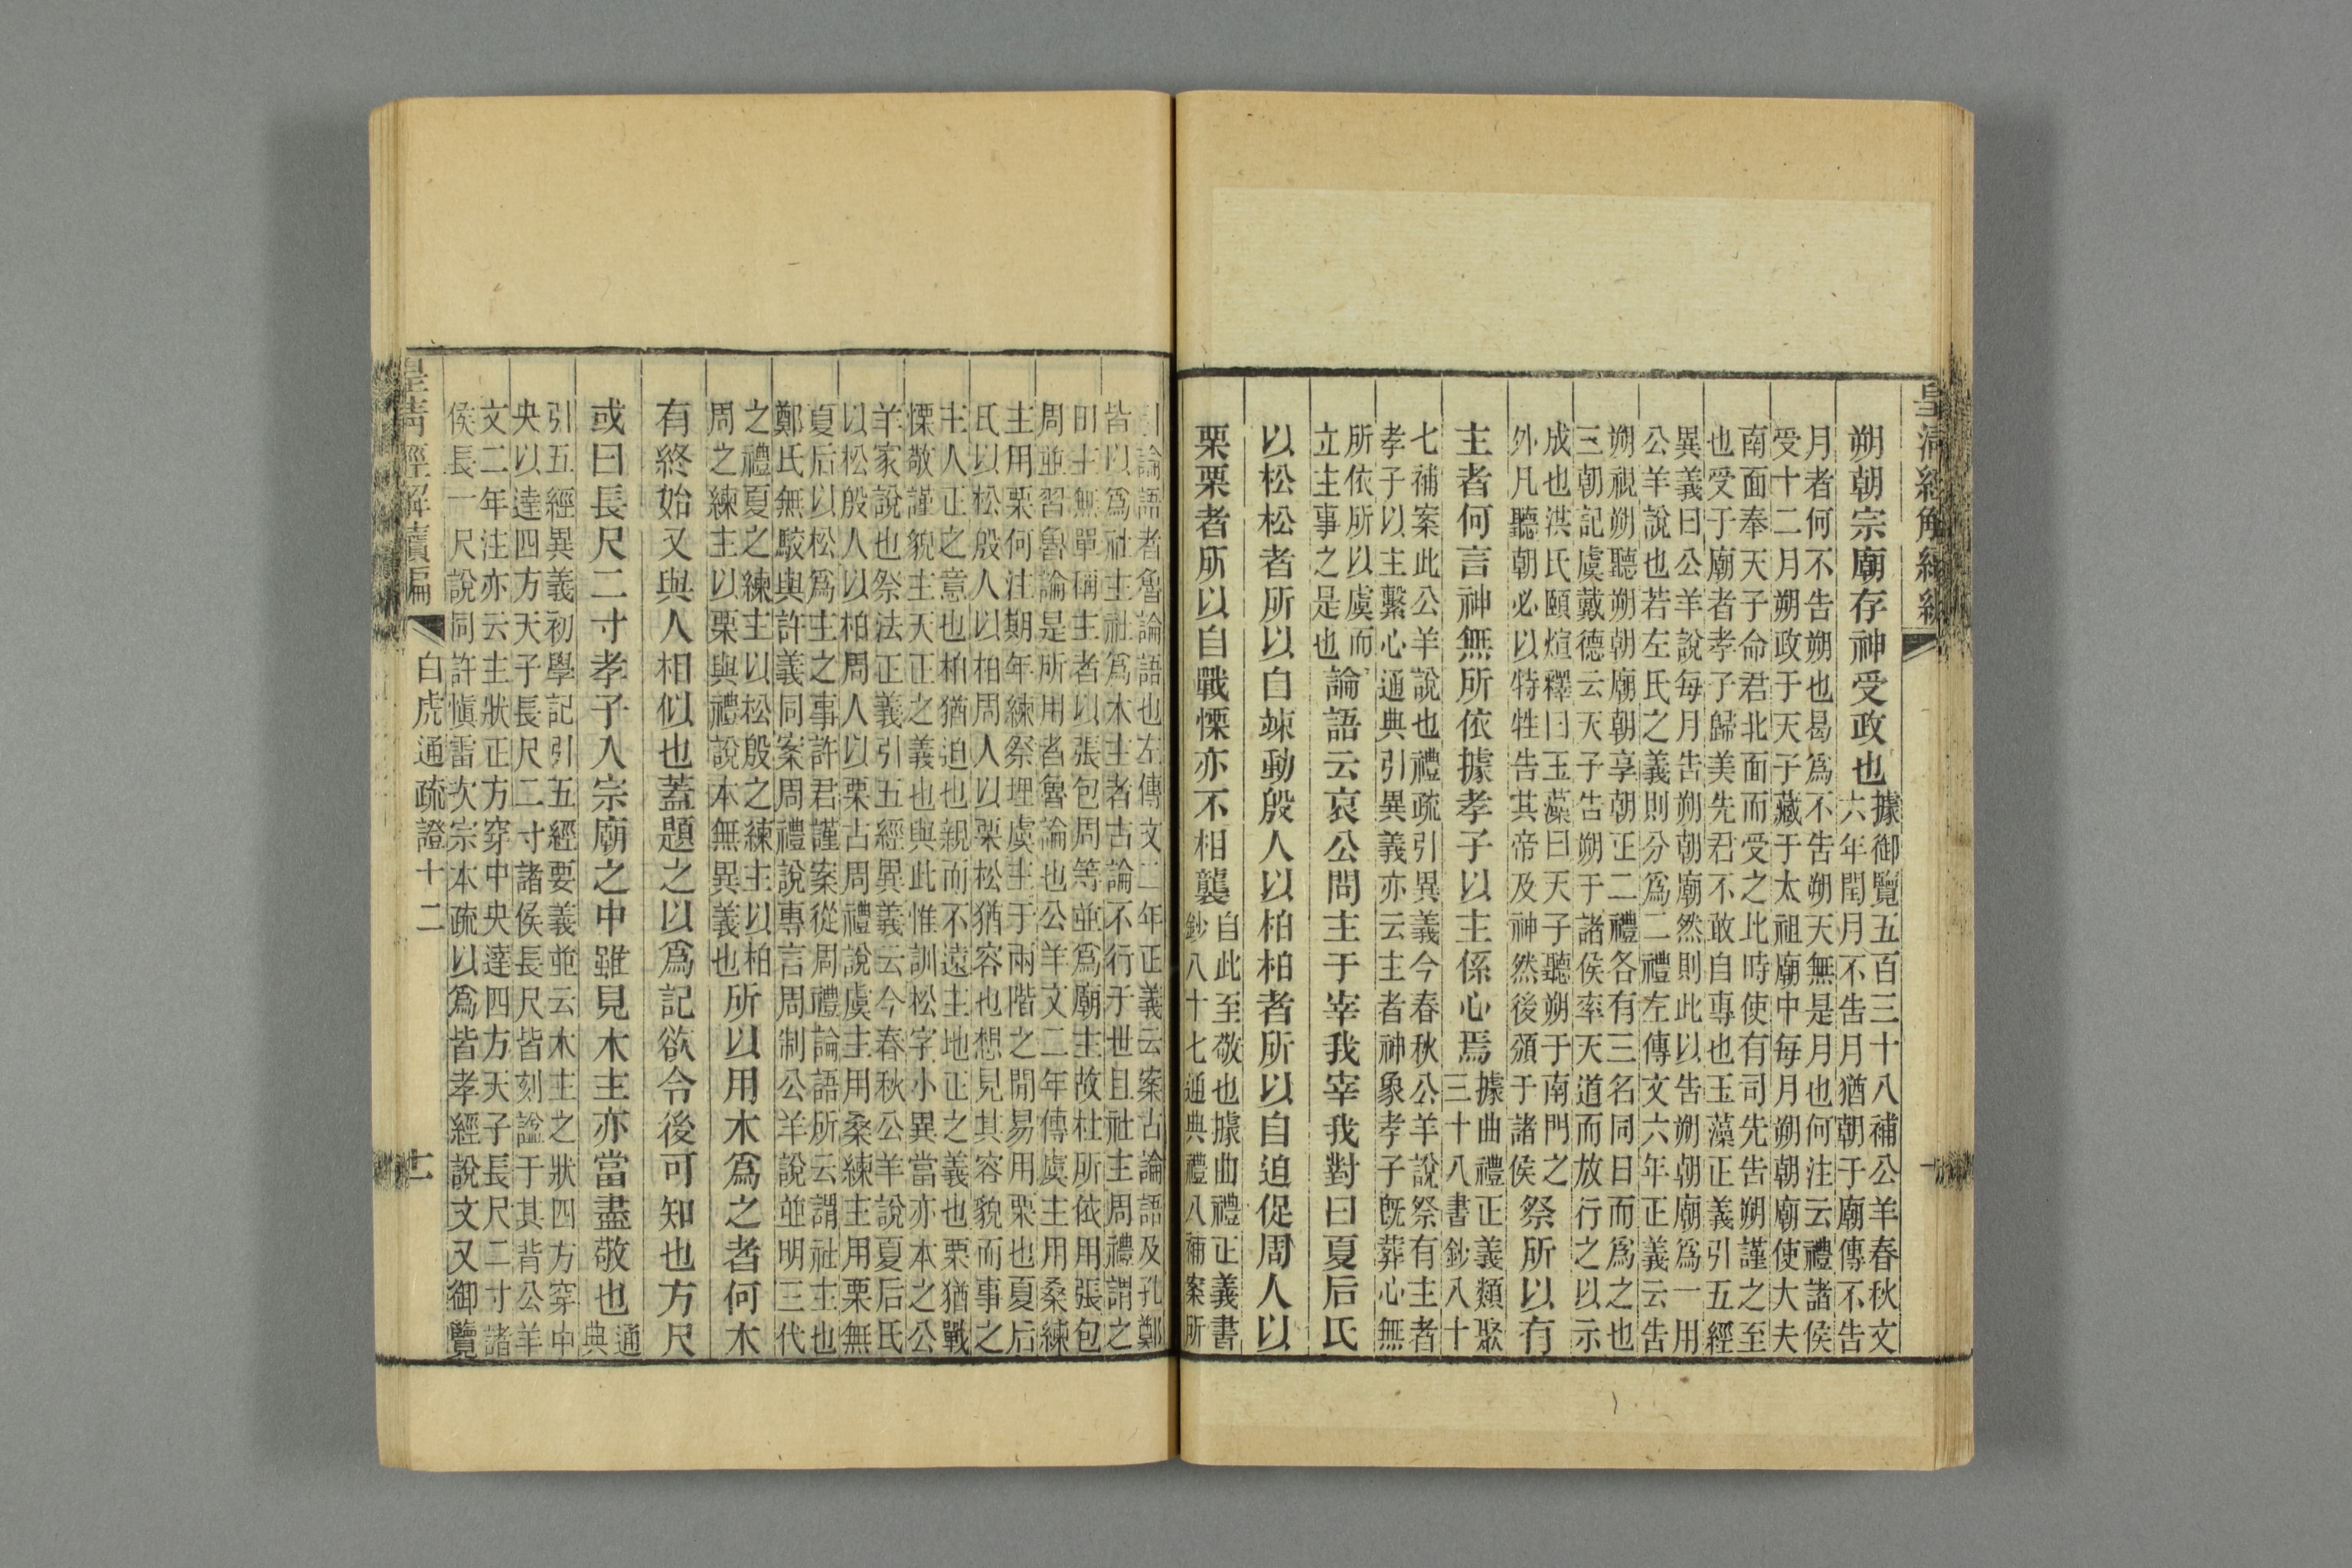 朔朝宗廟存神受政也據御覽五百三十八補公羊春秋文
六年閏月不告月猶朝于廟傳不告
月者何不告朔也曷爲不告朔天無是月也何注云禮諸侯
受十二月朔政于天子藏于太祖廟中每月朔朝廟使大夫
南面奉天子命君北面而受之此時使有司先告朔謹之至
也受于廟者孝子歸美先君不敢自專也玉藻正義引五經
異義曰公羊說每月告朔朝廟然則此以告朔朝廟爲一用
公羊說也若左氏之義則分爲二禮左傳文六年正義云告
朔視朔聽朔朝廟朝享朝正二禮各有三名同日而爲之也
三朝記虞戴德云天子告朔于諸侯率天道而放行之以示
成也洪氏頤煊釋曰玉藻曰天子聽朔于南門之
外凡聽朝必以特牲告其帝及神然後頒于諸侯
祭所以有
主者何言神無所依據孝子以主係心焉據曲禮正義類聚
三十八書鈔八十
七補案此公羊說也禮疏引異義今春秋公羊說祭有主者
孝子以主繫心通典引異義亦云主者神象孝子既葬心無
所依所以虞而
立主事之是也
論語云哀公問主于宰我宰我對曰夏后氏
以松松者所以自竦動殷人以柏柏者所以自迫促周人以
栗栗者所以自戰慄亦不相襲自此至敬也據曲禮正義書
鈔八十七通典禮八補案所
引論語者魯論語也左傳文二年正義云案古論語及孔鄭
皆以爲社主社爲木主者古論不行于世且社主周禮謂之
田主無單稱主者以張包周等並爲廟主故杜所依用張包
周並習魯論是所用者魯論也公羊文二年傳虞主用桑練
主用栗何注期年練祭埋虞主于兩階之間易用栗也夏后
氏以松殷人以柏周人以栗松猶容也想見其容貌而事之
主人正之意也柏猶迫也親而不遠主地正之義也栗猶戰
慄敬謹貌主天正之義也與此惟訓松字小異當亦本之公
羊家說也祭法正義引五經異義云今春秋公羊說夏后氏
以松殷人以柏周人以栗古周禮說虞主用桑練主用栗無
夏后以松爲主之事許君謹案從周禮論語所云謂社主也
鄭氏無駁與許義同案周禮說專言周制公羊說並明三代
之禮夏之練主以松殷之練主以柏
周之練主以栗與禮說本無異義也
所以用木爲之者何木
有終始又與人相似也蓋題之以爲記欲令後可知也方尺
或曰長尺二寸孝子入宗廟之中雖見木主亦當盡敬也通
典
引五經異義初學記引五經要義並云木主之狀四方穿中
央以達四方天子長尺二寸諸侯長尺皆刻諡于其背公羊
文二年注亦云主狀正方穿中央達四方天子長尺二寸諸
侯長一尺說同許愼雷次宗本疏以爲皆孝經說文又御覽
皇清經解續編 白虎通疏證十二 二